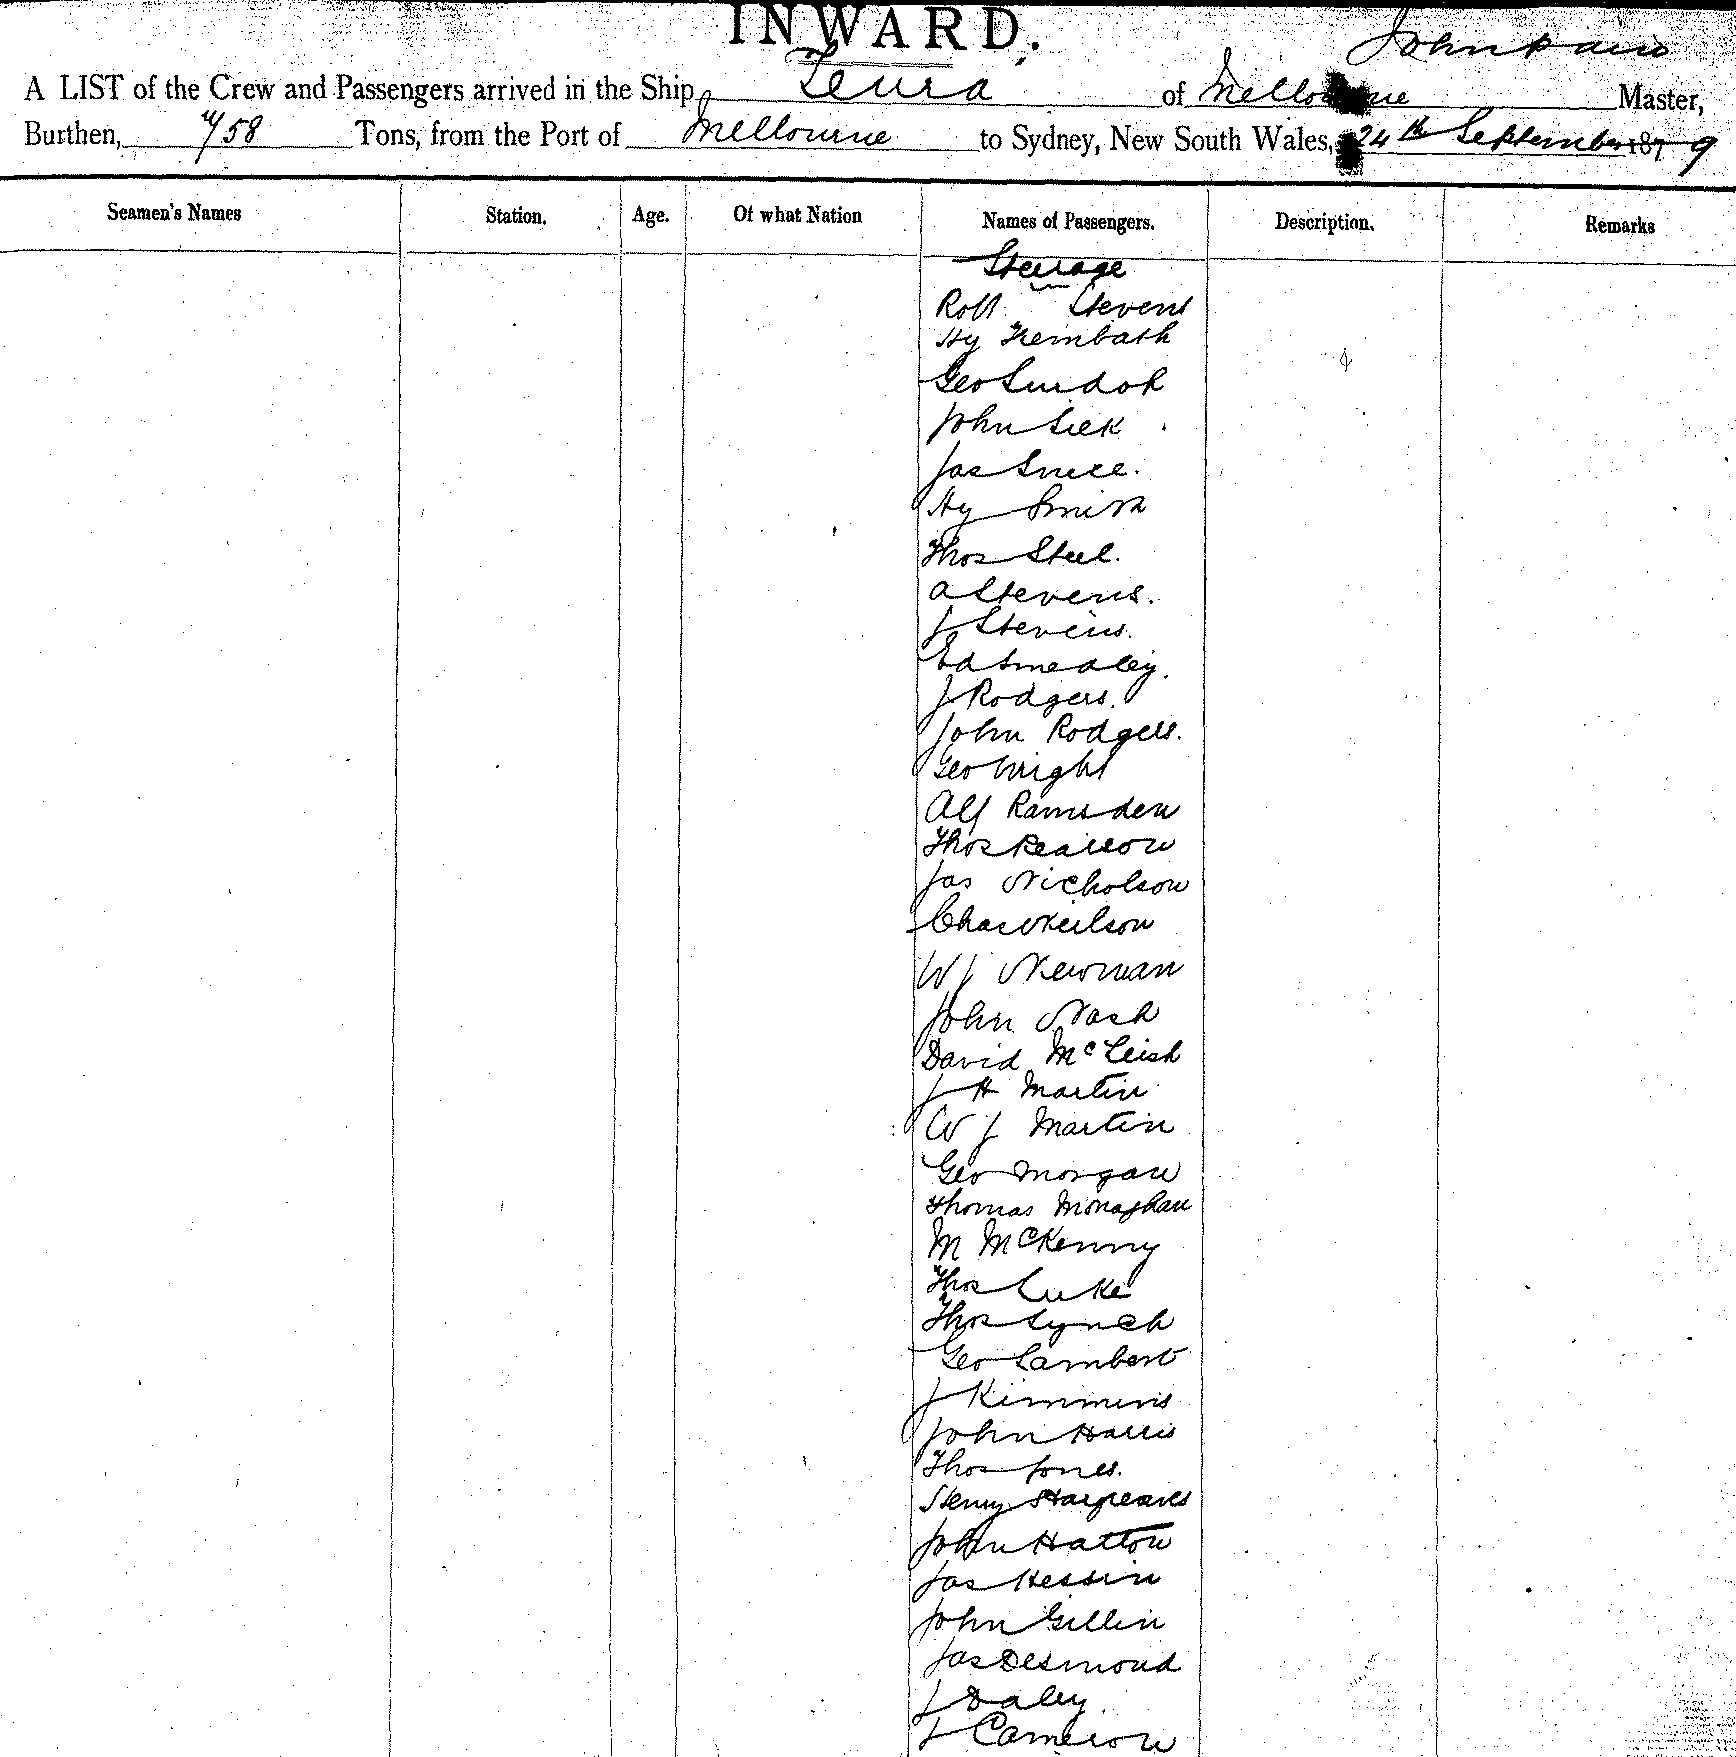 INWARD.
A LIST of the Crew and Passengers arrived in the Ship of Melbourne John Master,
Burthen, 458 Tons, from the Port of Melbourne to Sydney, New South Wales, 24th September 1879
Seamen's Names Station. Age. Of what Nation Names of Passengers. Description. Remarks
Steerage
Robt Stevens
Hy Trembath
Geo
John
Jas
Hy Smith
Thos Steel.
A Stevens.
J Stevens.
Ed Smedley.
J Rodgers.
John Rodgers.
Geo Wright
Alf Ramsden
Thos
Jas Nicholson
Chas Neilson
W J Newman
John Nash
David McLeish
J H Martin
W J Martin
Geo Morgan
Thomas Monaghan
M McKenny
Thos Luke
Thos Lynch
Geo Lambert
J Kimmins
John Harris
Thos Jones.
Henry Hargreaves
John Hatton
Jas Hessin
John Gillin
Jas Desmond
J Daley
J Cameron